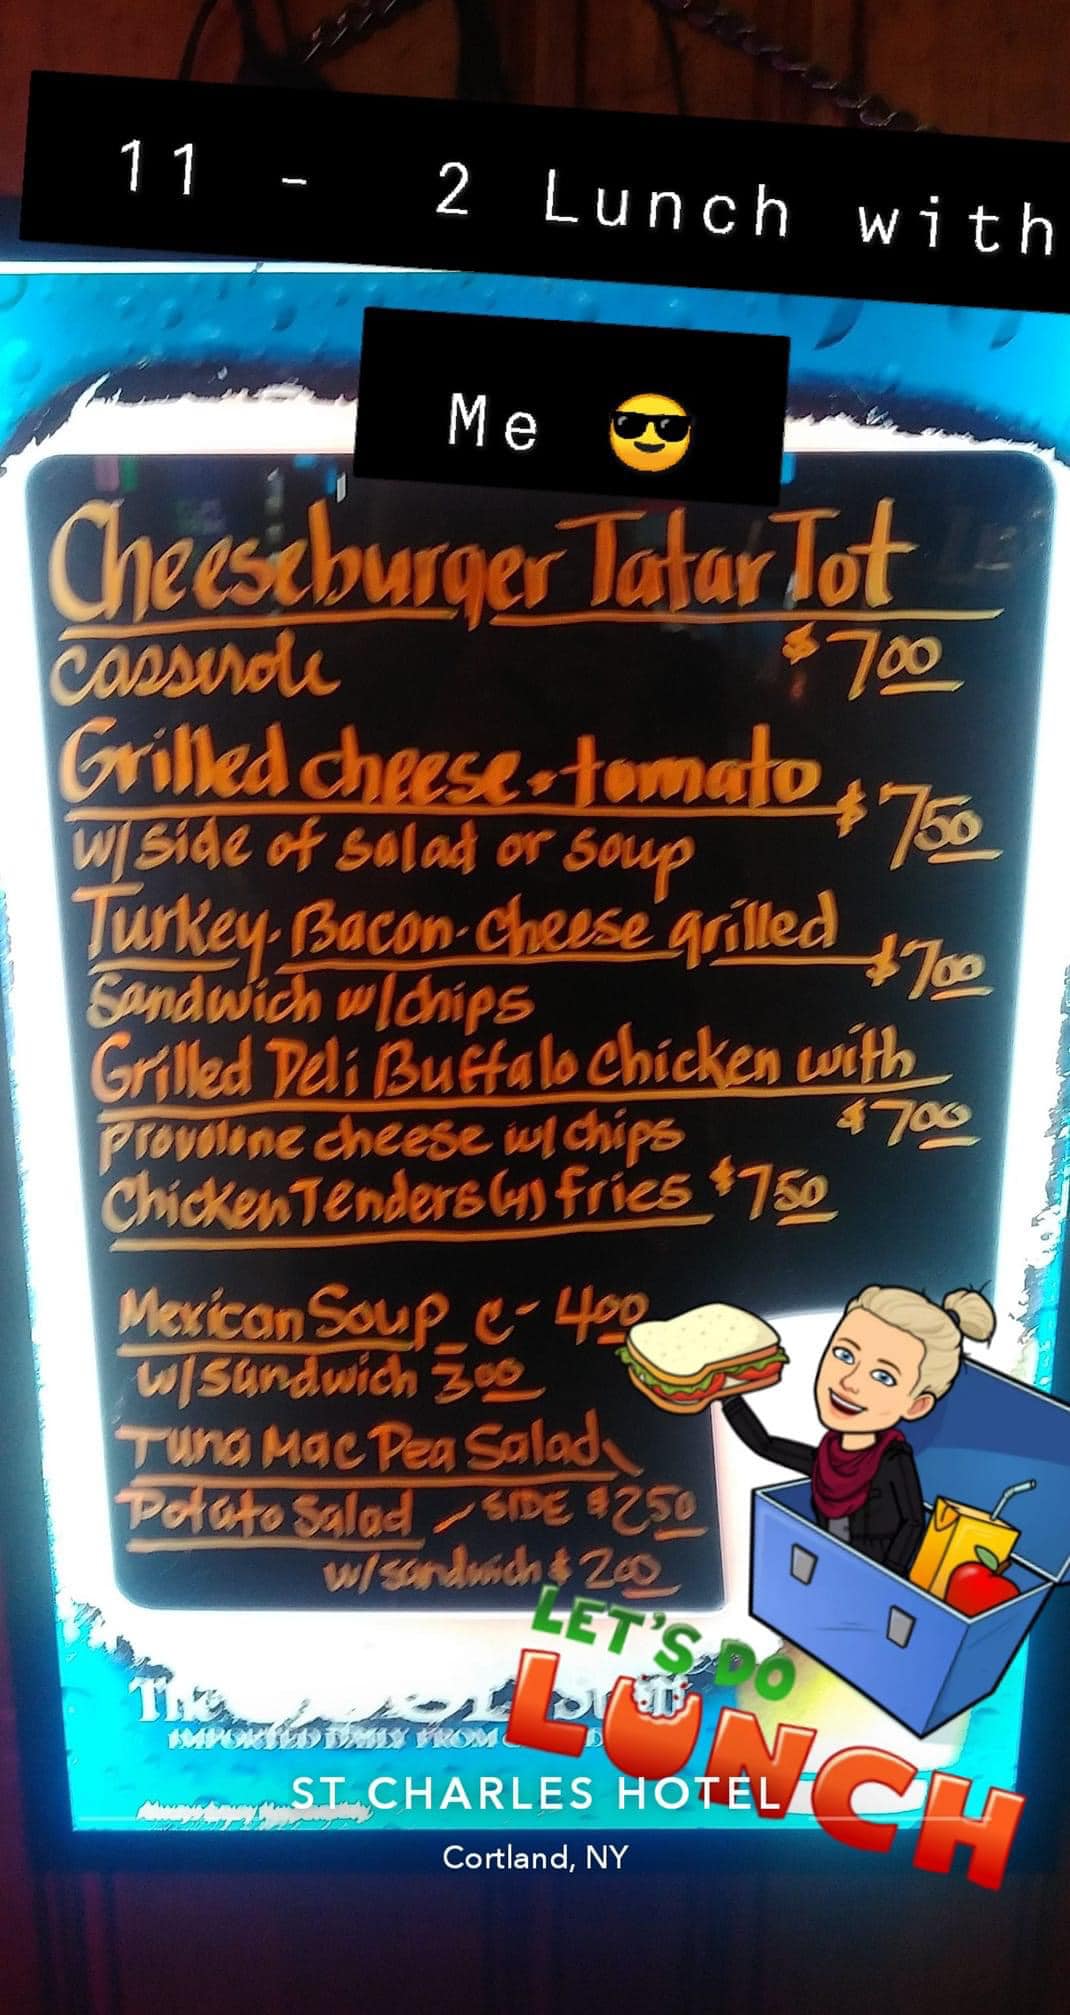 11 - 2 Lunch with
Me 😎
Cheeseburger Tatar Tot
casserole $7.00
Grilled cheese + tomato $7.50
w/ side of salad or soup
Turkey-Bacon-Cheese grilled $7.00
Sandwich w/chips
Grilled Deli Buffalo Chicken with
Provolone cheese w/ chips $7.00
Chicken Tenders (4) fries $7.50
Mexican Soup C- 4.00
w/sandwich 3.00
Tuna Mac Pea Salad
Potato Salad - SIDE $2.50
w/sandwich $2.00
LET'S DO
LUNCH
The
IMPORTED DAILY FROM
ST CHARLES HOTEL
Cortland, NY